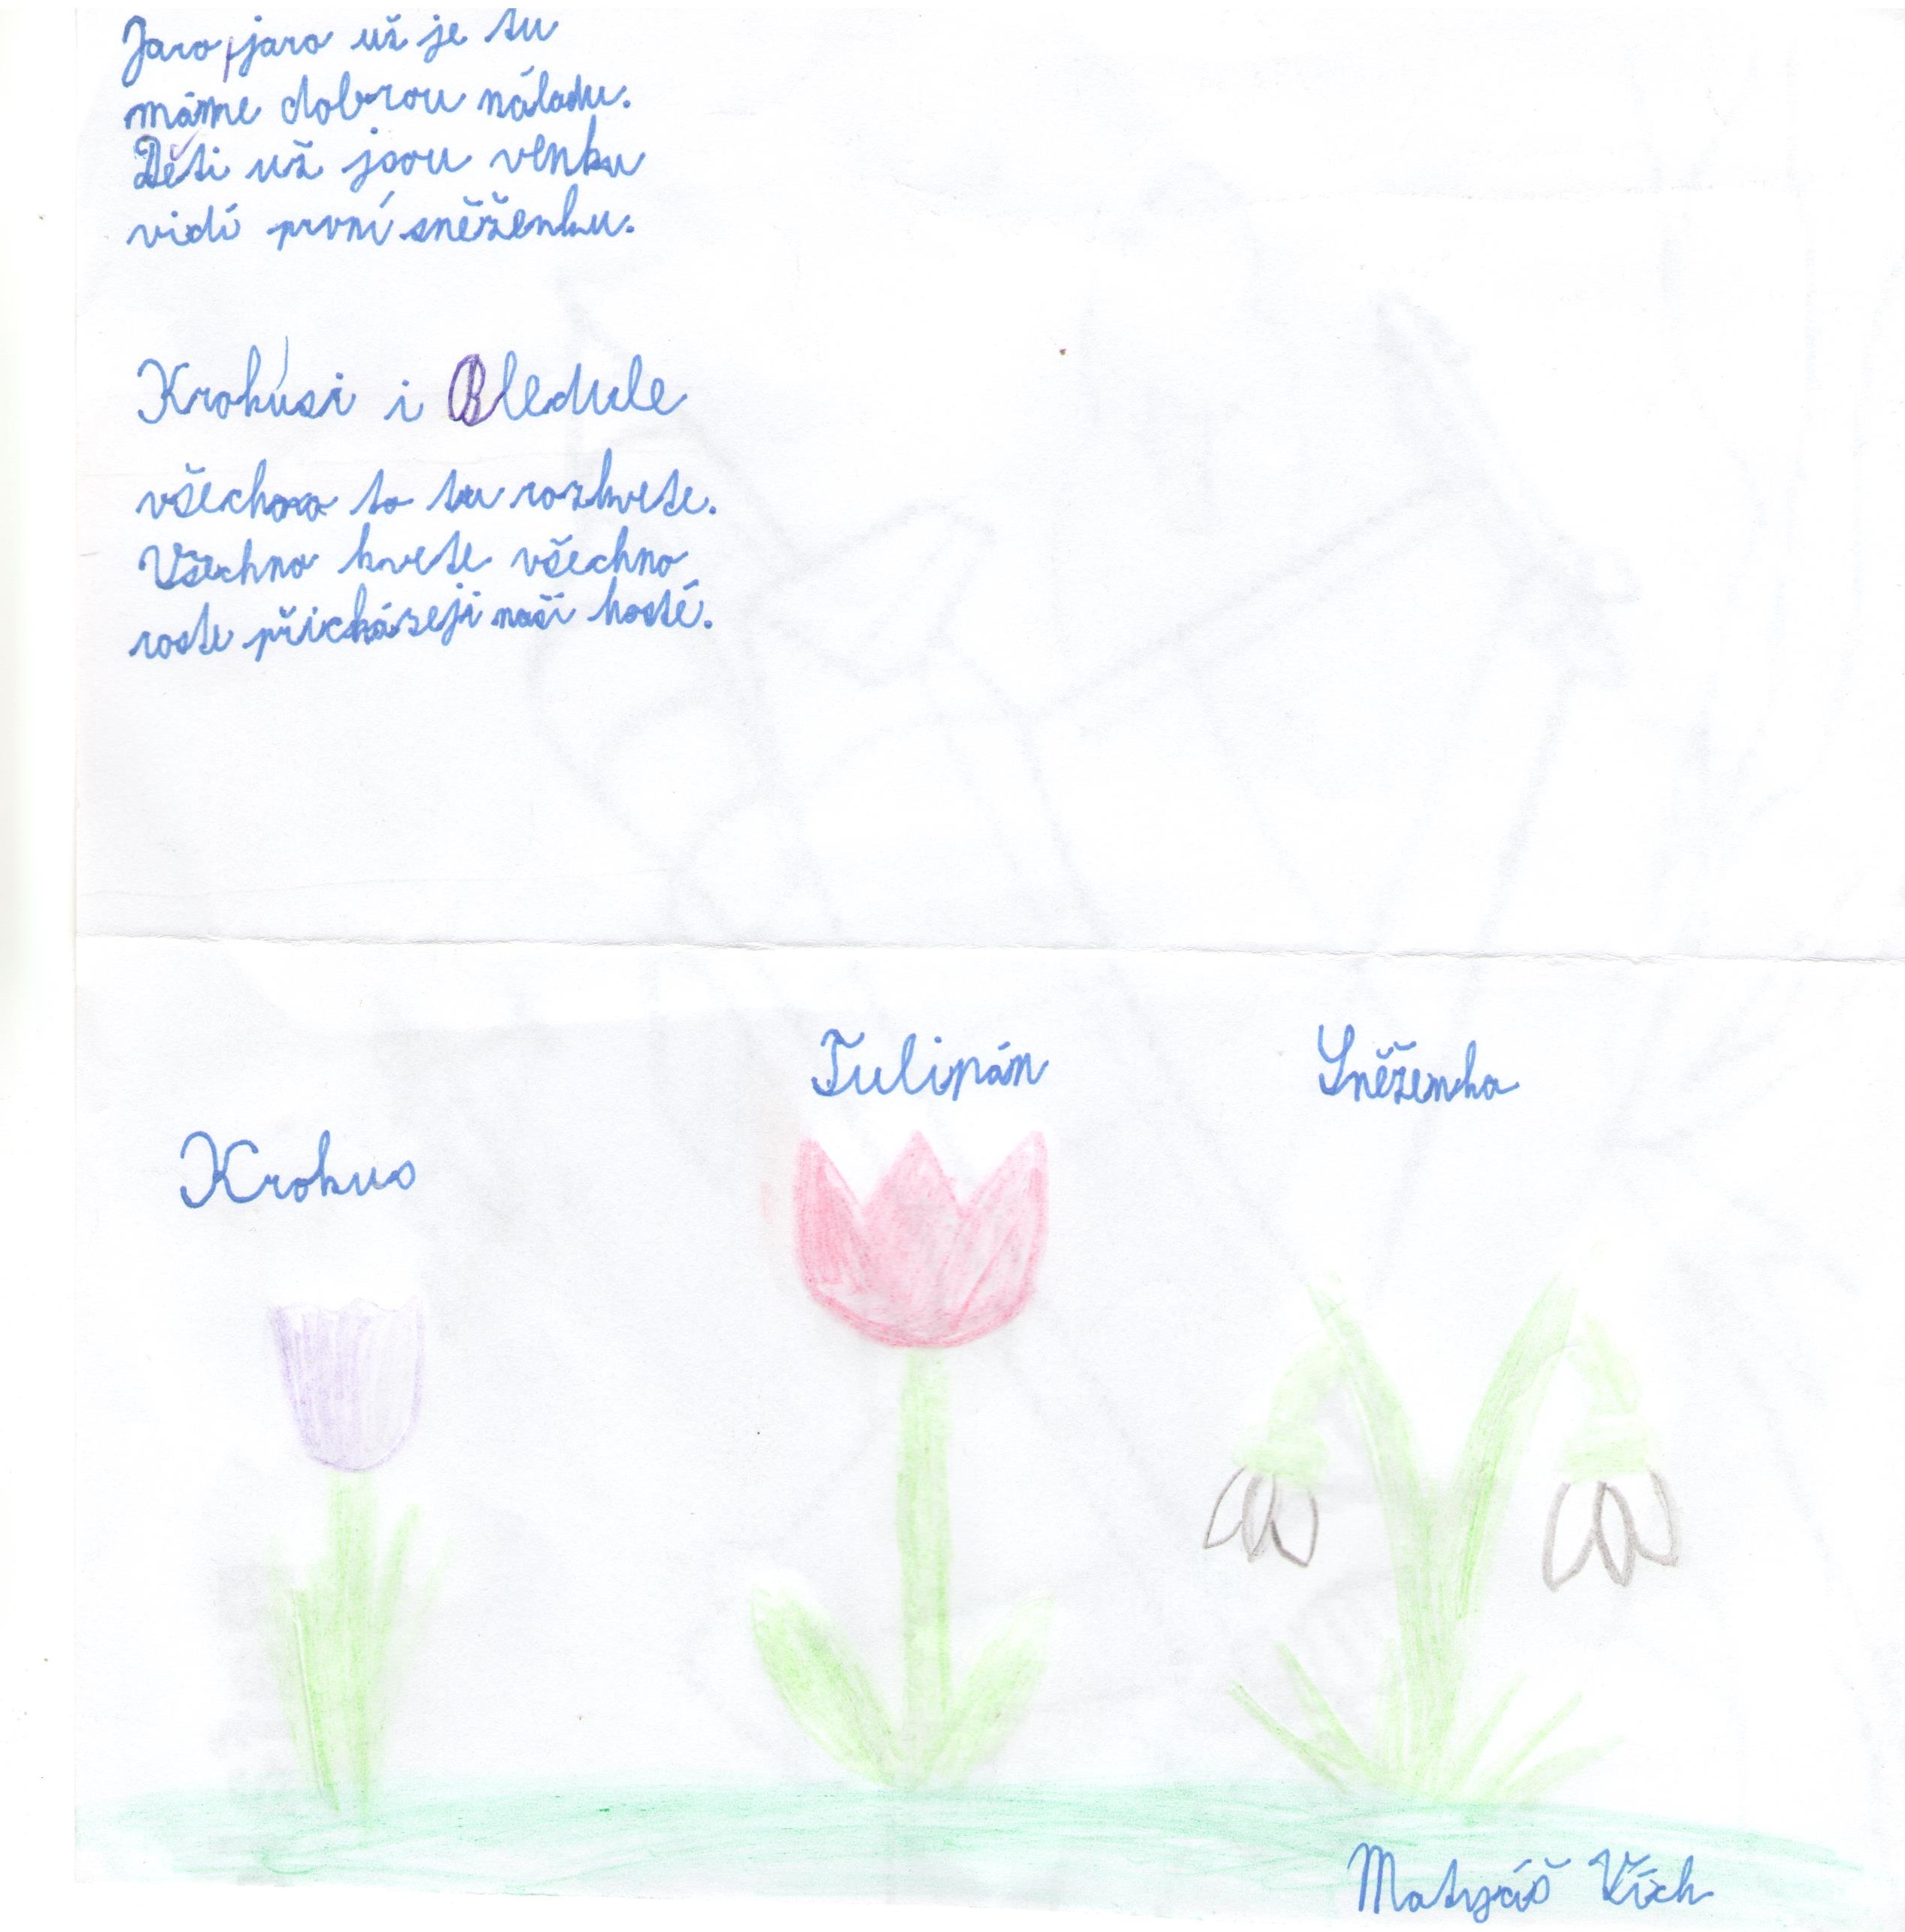 Jaro, jaro už je tu
máme dobrou náladu.
Děti už jsou venku
vidí první sněženku.
Krokúsi i Bledule
všechno to tu rozkvete.
Všechno kvete všechno
roste přicházejí naší hosté.
Tulipán
Sněženka
Krokus
Matyáš Vích